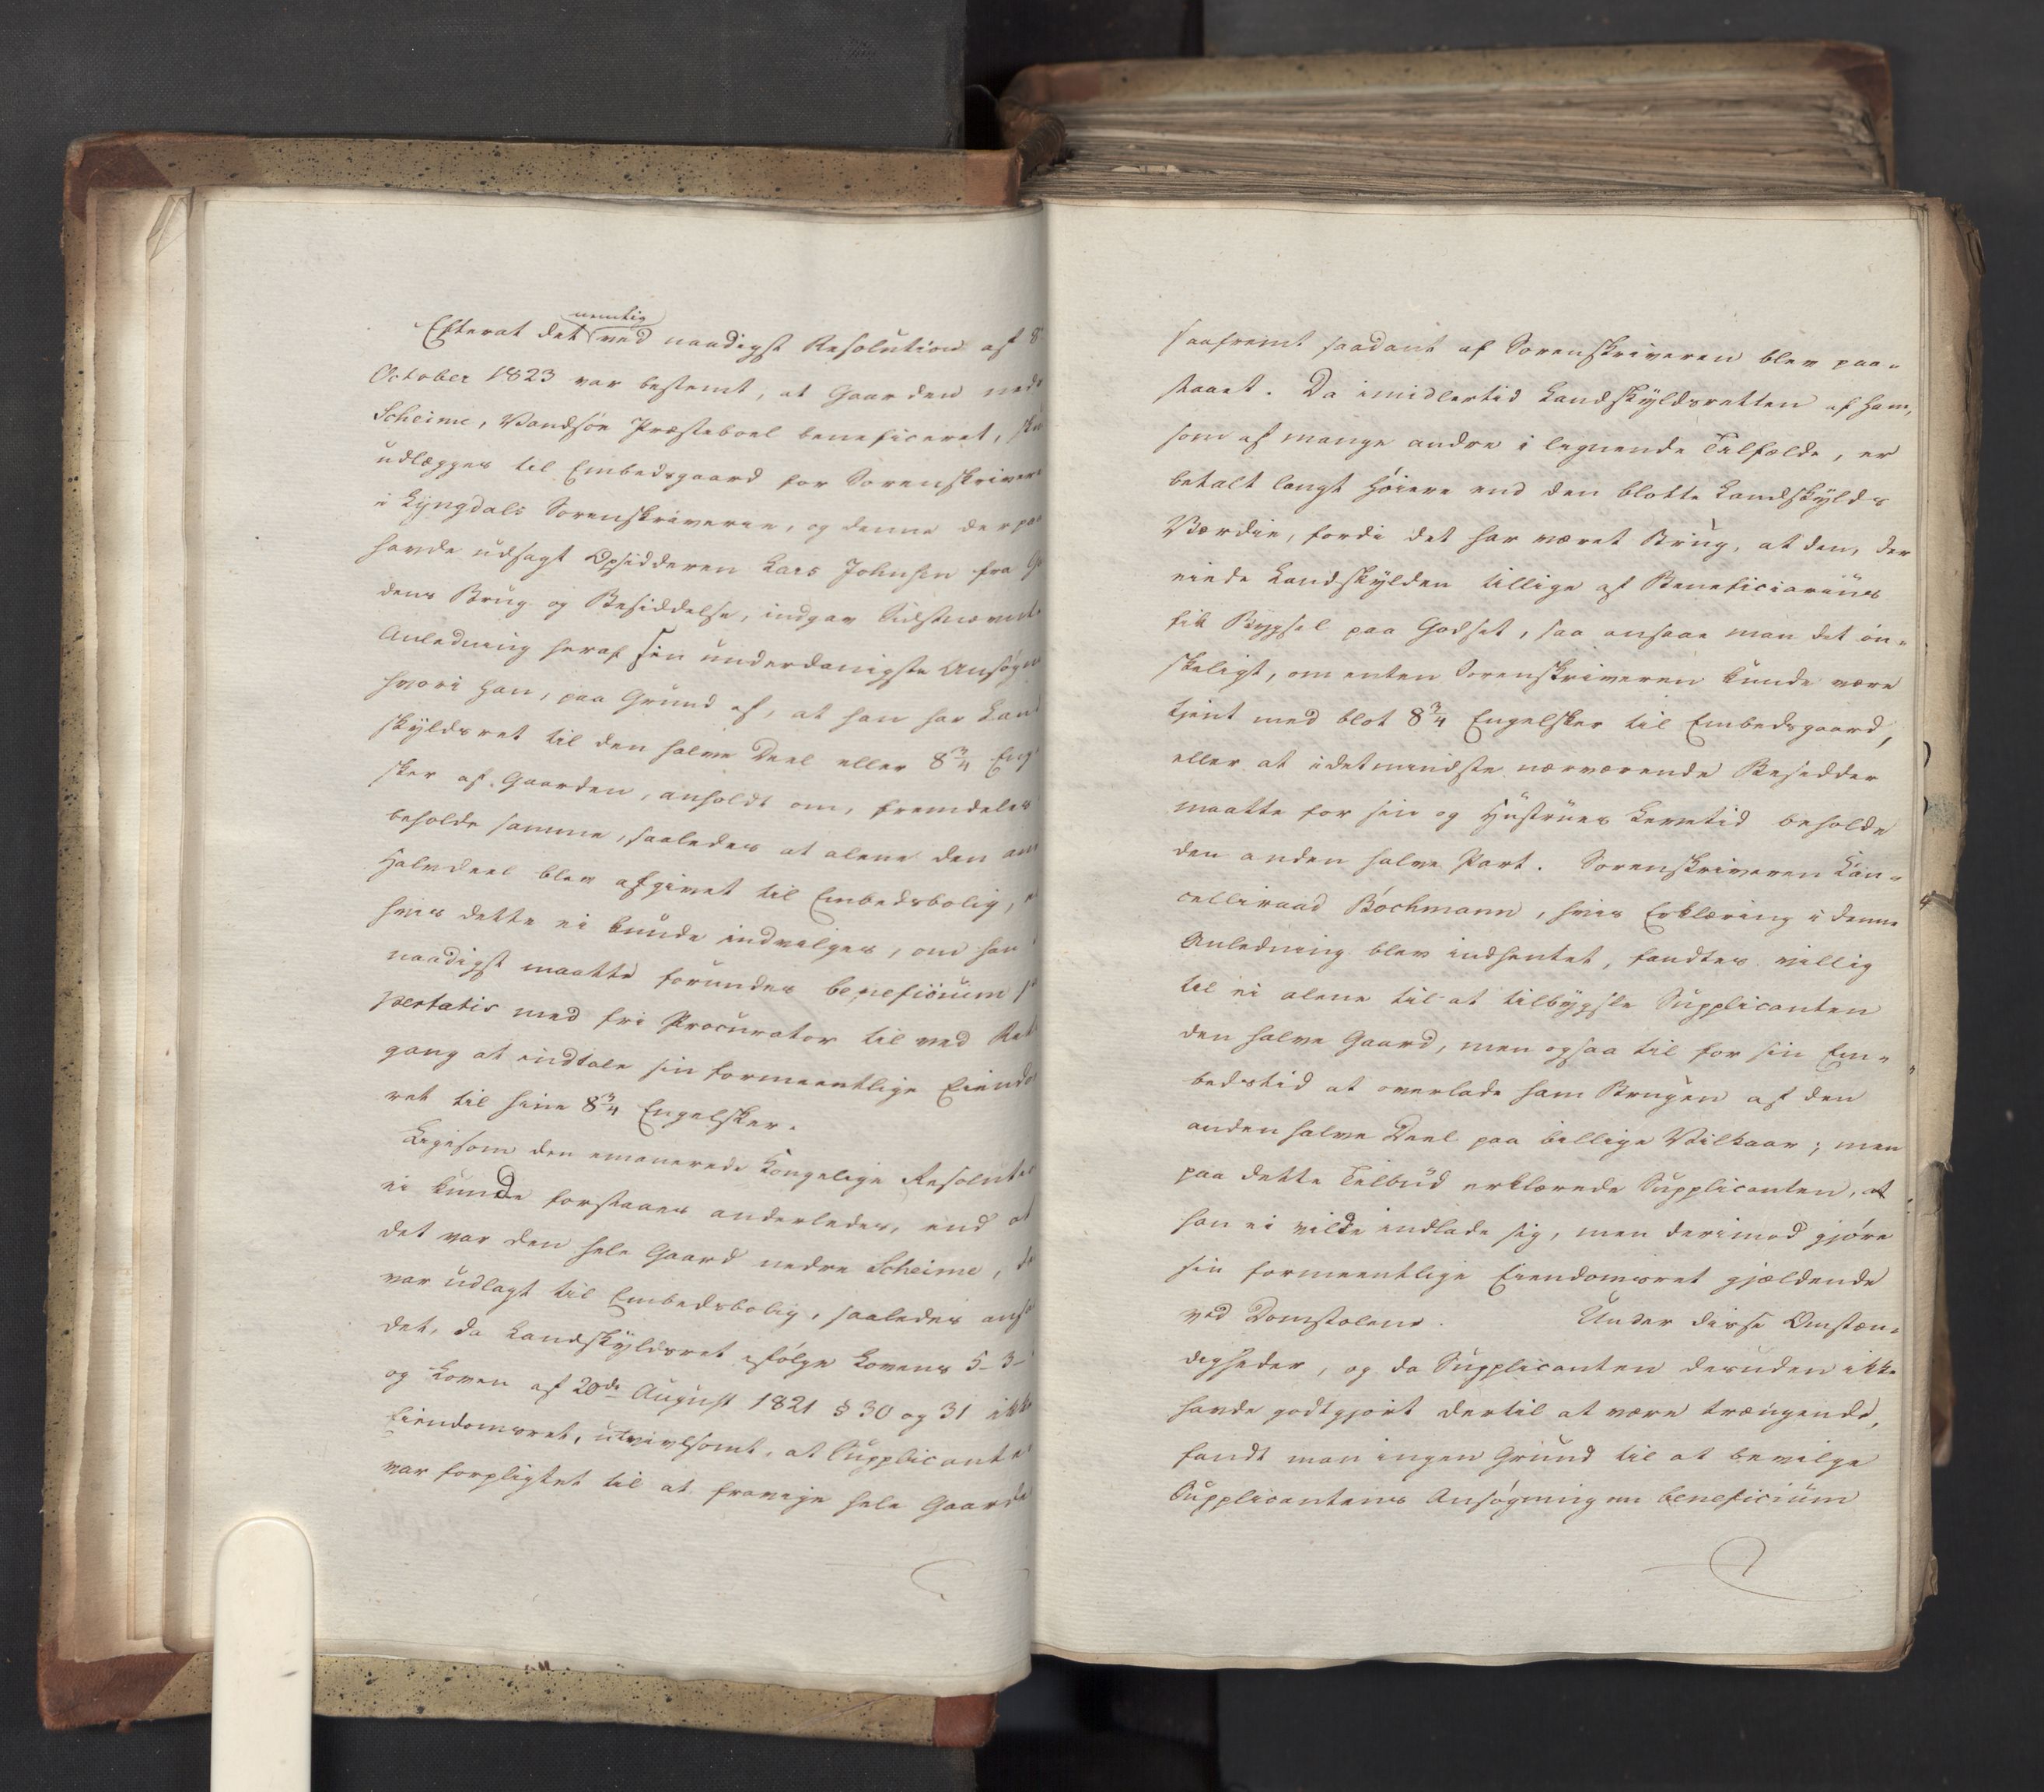 nemlig
Efterat det ved naadigst Resolution af 8
October 1823 var bestemt, at Gaarden nedr
Scheime, Vandsøe Præsteboel beneficeret, sku
udlægges til Embedsgaard for Sorenskriver
i Lyngdals Sorenskriverie, og denne derpaa
havde udsagt Opsidderen Lars Johnsen fra Ga
dens Brug og Besiddelse, indgav Sidstnævnte
Anledning heraf sin underdanigste Ansøgn
hvori han, paa Grund af, at han har Land
skyldsret til den halve Deel eller 8 3/4 Eng
sker af Gaarden, anholdt om, fremdeles
beholde samme, saaledes at alene den an
Halvdeel blev afgivet til Embedsbolig, e
hvis dette ei kunde indvilges, om han
naadigst maatte forundes beneficium p
pertatis med fri Procurator til ved Ret
gang at indtale sin formeentlige Eiendo
ret til hine 8 3/4 Engelsker.
Ligesom den emanerede Kongelige Resolut
ei kunde forstaaes anderledes, end at
det var den hele Gaard nedre Scheime, d
var udlagt til Embedsbolig, saaledes ans
det, da Landskyldsret ifølge Lovens 5-3-
og Loven af 20de August 1821 § 30 og 31 ikke
Eiendomsret, utvivlsomt, at Supplicante
var forpligtet til at fravige hele Gaarde
saafremt saadant af Sorenskriveren blev paa-
staaet. Da imidlertid Landskyldsretten af ham,
som af mange andre i lignende Tilfælde, er
betalt langt Høiere end den blotte Landskylds
Værdie, fordi det har været Brug, at den, der
eiede Landskylden tillige af Beneficiarius
fik Bygsel paa Godset, saa ansaae man det øn-
skeligt, om enten Sorenskriveren kunde være
tjent med blot 8 3/4 Engelsker til Embedsgaard,
eller at idetmindste nærværende Besidder
maatte for sin og Hustrues Levetid beholde
den anden halve Part. Sorenskriveren Can-
celliraad Bøchmann, hvis Erklæring i denne
Anledning blev indhentet, fandtes villig
til ei alene til at tilbygsle Supplicanten
den halve Gaard, men ogsaa til for sin Em-
bedstid at overlade ham Brugen af den
anden halve Deel paa billige Vilkaar; men
paa dette Tilbud erklærede Supplicanten, at
han ei vilde indlade sig, men derimod gjøre
sin formeentlige Eiendomsret gjældende
ved Domstolene. Under disse Omstæn-
digheder, og da Supplicanten desuden ikke
havde godtgjort dertil at være trængende,
fandt man ingen Grund til at bevilge
Supplicantens Ansøgning om beneficium